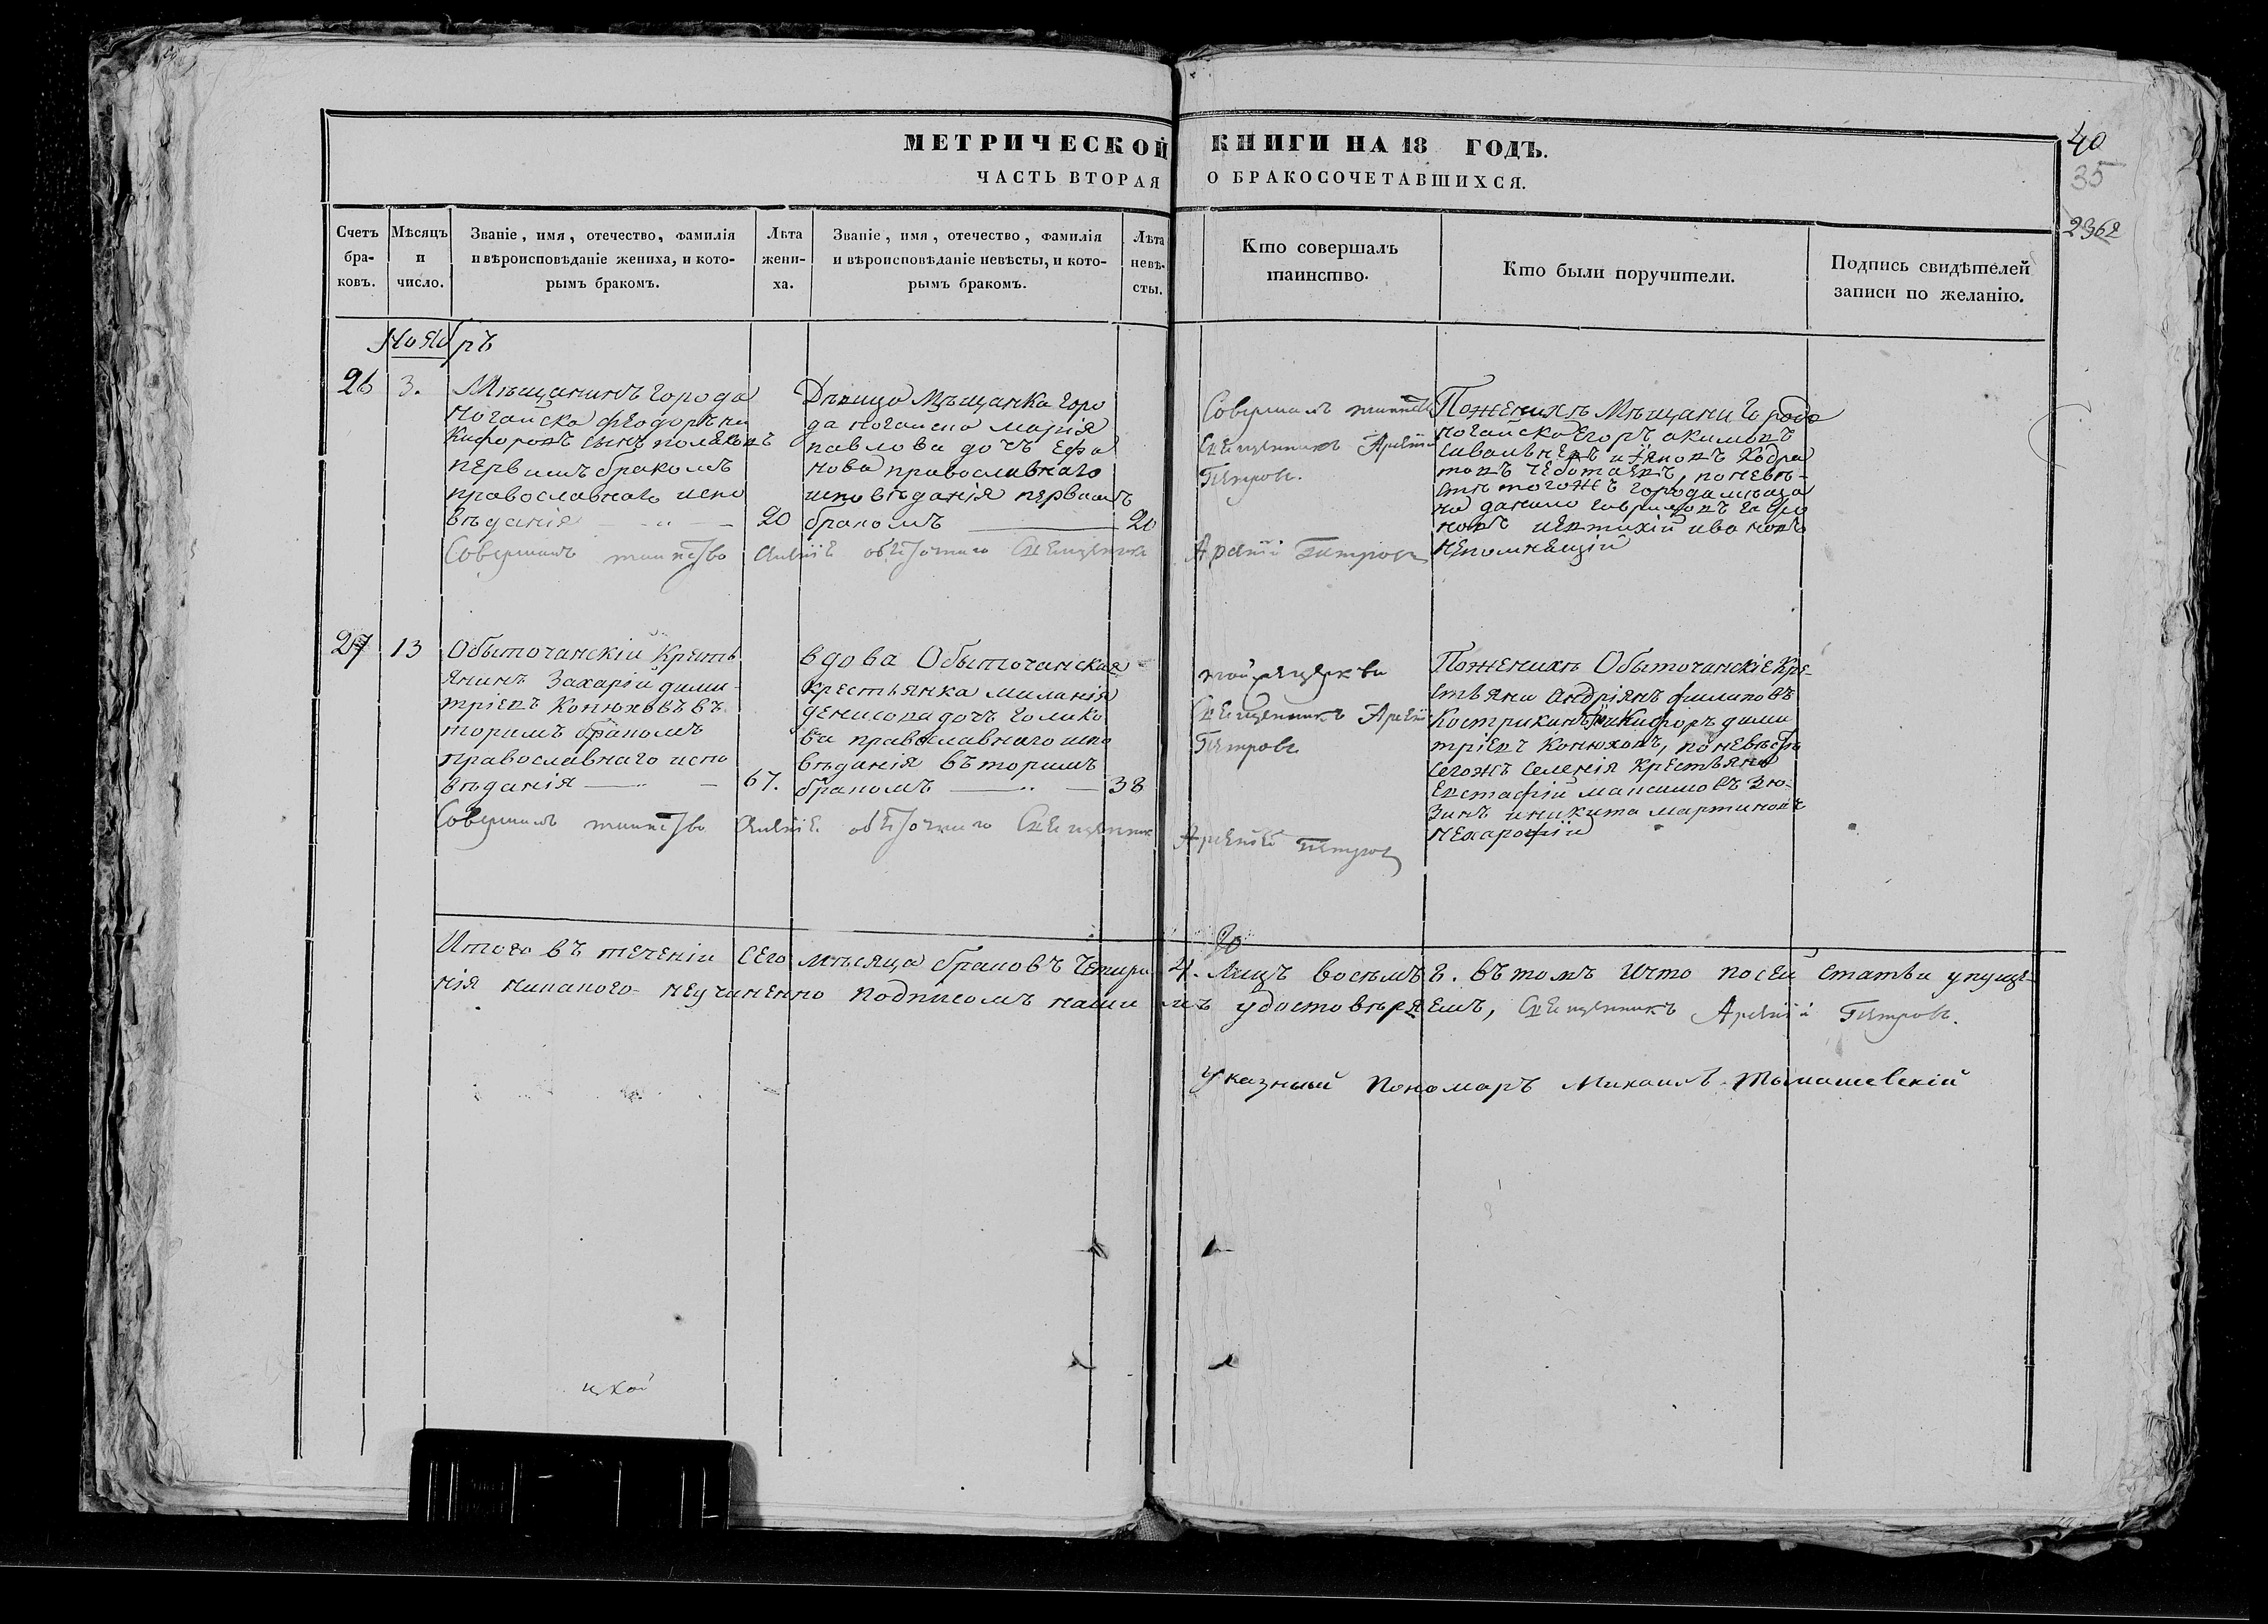 МЕТРИЧЕСКОЙ КНИГИ НА 18 ГОДЪ.
ЧАСТЬ ВТОРАЯ О БРАКОСОЧЕТАВШИХСЯ.
40
35
2362
Счетъ
бра-
ковъ.
Мѣсяцъ
и
число.
Званіе, имя, отечество, фамилія
и вѣроисповѣданіе жениха, и кото-
рымъ бракомъ.
Лѣта
жени-
ха.
Званіе, имя, отечество, фамилія
и вѣроисповѣданіе невѣсты, и кото-
рымъ бракомъ.
Лѣта
невѣ-
сты.
Кто совершалъ
таинство.
Кто были поручители.
Подпись свидѣтелей
записи по желанію.
Ноябръ
26
3.
Мѣщанинъ города
Ногайска Феодоръ Ни
кифоровъ сынъ Поляковъ
первимъ бракомъ
православнаго испо
вѣданія
20
Дѣвица Мѣщанка горо
да Ногайска Марія
Павлова дочъ Ефа
нова православнаго
исповѣданія первимъ
бракомъ
20
Совершалъ таинство
Священникъ Арсеній
Петровъ.
По женихѣ Мѣщани города
Ногайска Егоръ Акимовъ
и Яковъ Кодра
товъ Чеботаевъ, по невѣ-
стѣ тогожъ города мѣща
не Данило Гавриловъ
новъ и Евтихій Ивановъ
Непомнещій
Совершалъ таинство Священника Арсеній Петровъ
27
13
Обыточанскій Кресть
янинъ Захарій Дими
тріевъ Конюховъ въ
торимъ бракомъ
православнаго испо
вѣданія
67.
вдова Обыточанская
крестьянка Миланія
Денисова дочъ Голико
ва православнаго испо
вѣданія въторимъ
бракомъ
38
той же церкви
Священникъ Арсеній
Петровъ
По женихѣ Обыточанскіе Кре-
стьяни Андріянъ Филиповъ
Кострикинъ и Никифоръ Дими
тріевъ Конюховъ, по невѣстѣ
сегожъ селенія крестьяни
Евстафій Максимовъ Зю-
зинъ и Никита Мартиновъ
Совершалъ таинство Священник Арсеній Петровъ
Итого въ теченіи сего мѣсяца браковъ четыри 4. Лицъ восѣмъ 8. въ томъ и что по сей статьи упуще-
нія никакого неучиненно подписомъ нашимъ удостовѣряемъ, Священникъ Арсеній Петровъ.
Указный Пономаръ Михаилъ Томашевскій